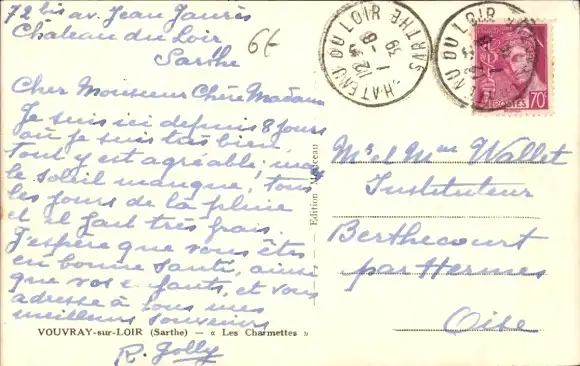 72 bis av. Jean Jaurès
Château du Loir
Sarthe
6f
Cher Monsieur Chère Madame
Je suis ici depuis 8 jours
où je suis très bien
tout y est agréable, mais
le soleil manque, tous
les jours de la pluie
et il fait très frais.
J'espère que vous êtes
en bonne santé, ainsi
que vos enfants, et vous
adresse à tous mes
meilleurs souvenirs
R. Golly
VOUVRAY-sur-LOIR (Sarthe) — « Les Charmettes »
Edition
CHATEAU DU LOIR SARTHE
1 -8
39
POSTES 70c
Mr et Mme Wallet
Instituteur
Berthecourt
par Hermes
Oise